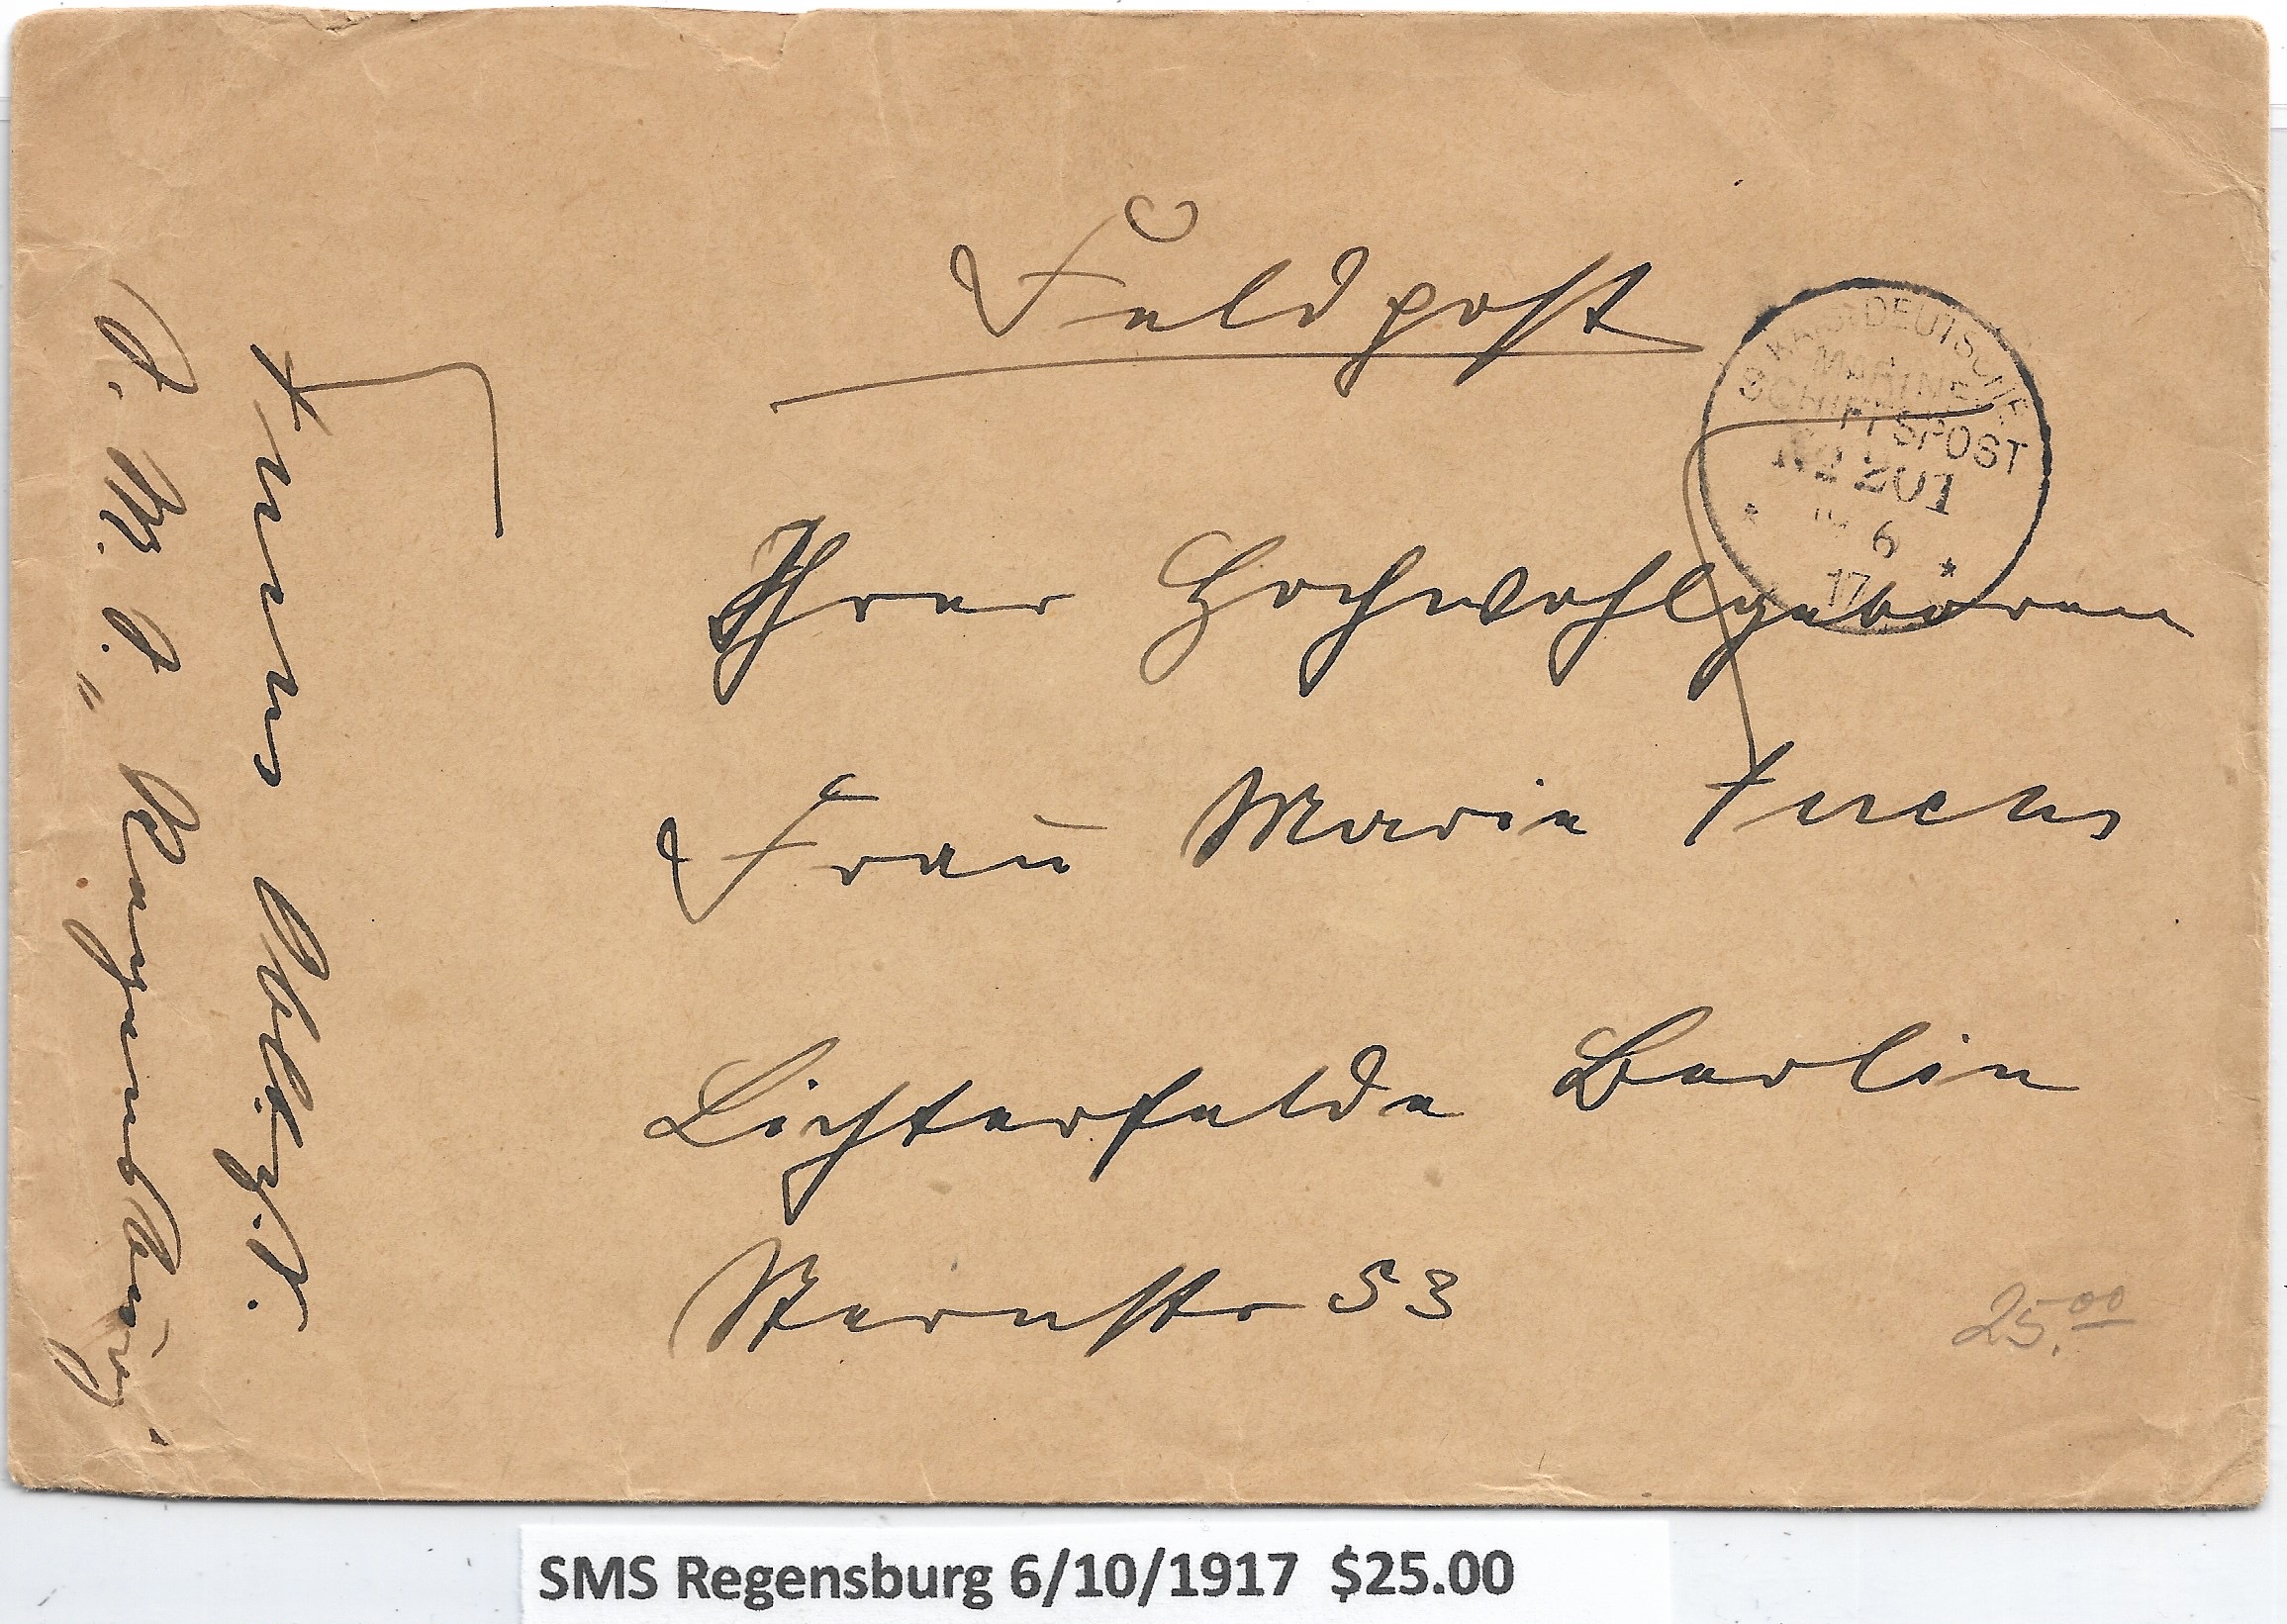 Feldpost
KAIS. DEUTSCHE
MARINE-
SCHIFFSPOST
No 201
* 6 *
17
Ihrer Hochwohlgeboren
Frau Marie Fuchs
Lichterfelde Berlin
Sternstr 53
S. M. S. „ Regensburg
25.00
SMS Regensburg 6/10/1917 $25.00